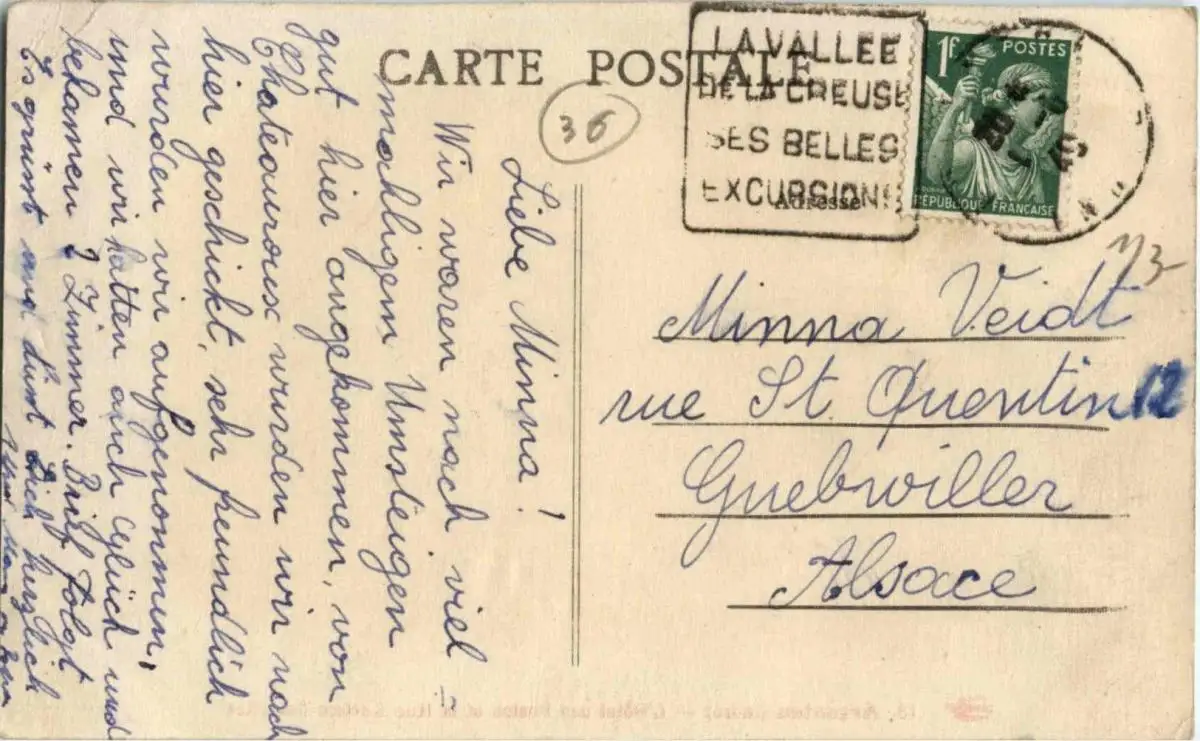 CARTE POSTALE
LA VALLEE
DE LA CREUSE
SES BELLES
EXCURSIONS
1F POSTES
REPUBLIQUE FRANCAISE
Adresse
36
Minna Veidt
rue St. Quentin 12
Guebwiller
Alsace
Liebe Minna!
Wir waren nach viel-
machligem Umsteigen
gut hier angekommen, von
Chateauroux wurden wir nach
hier geschickt, sehr freundlich
wurden wir aufgenommen,
und wir hatten auch Glück und
bekamen 2 Zimmer. Brief folgt
Es grüsst und küsst Dich herzlich